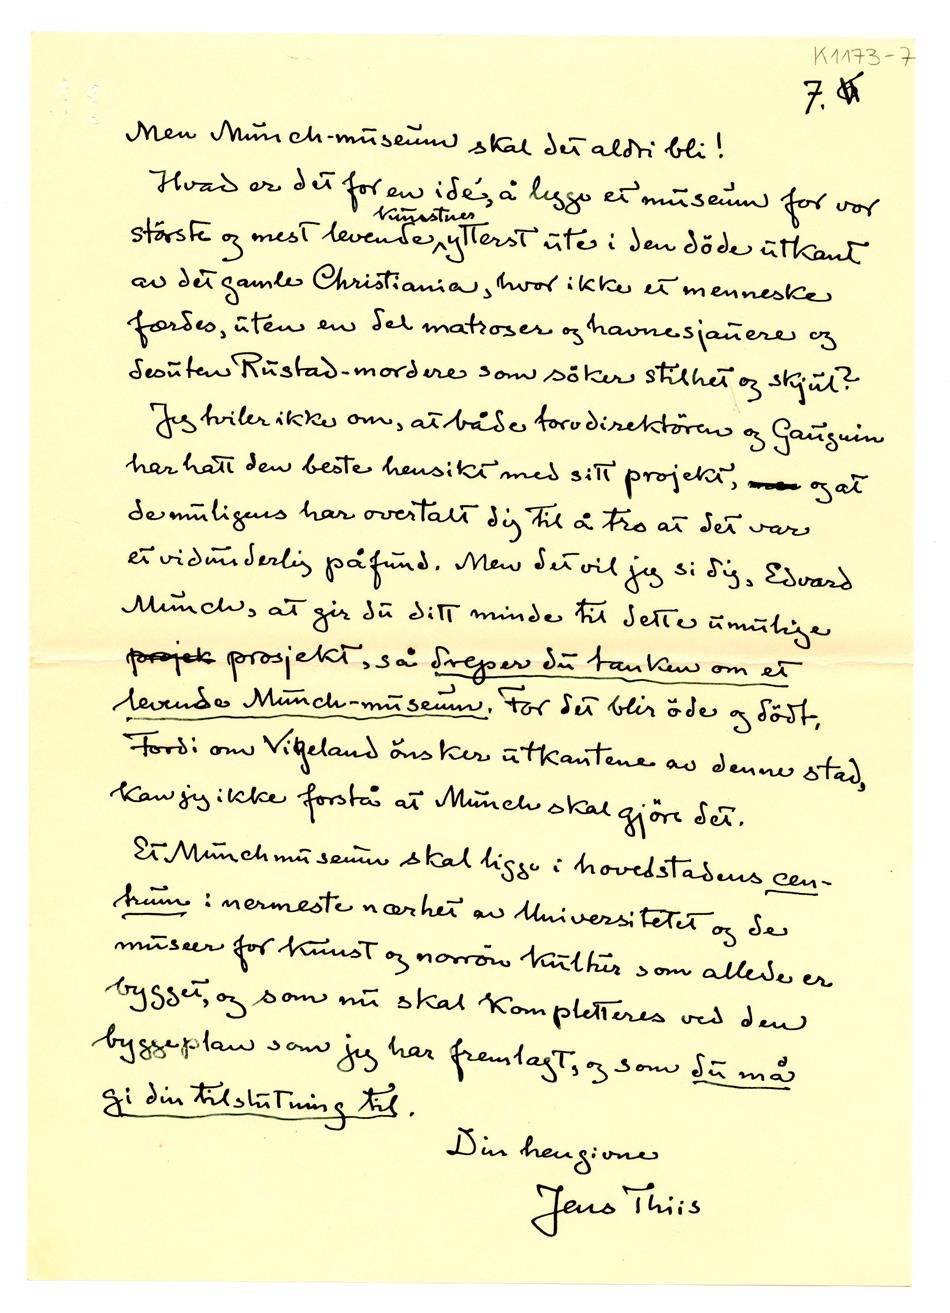 K1173-7
7.
Men Munch-museum skal det aldri bli!
Hvad er det for en idé, å legge et museum for vor
kunstner
störste og mest levende ytterst ute i den döde utkant
av det gamle Christiania, hvor ikke et menneske
færdes, uten en del matroser og havnesjauere og
desuten Rustad-mordere som söker stilhet og skjul?
Jeg tviler ikke om, at både torvdirektören og Gauguin
har hatt den beste hensikt med sitt projekt, og at
de muligens har overtalt dig til å tro at det var
et vidunderlig påfund. Men det vil jeg si dig, Edvard
Munch, at gir du ditt minde til dette umulige
projek prosjekt, så dreper du tanken om et
levende Munch-museum. For det blir öde og dödt.
Fordi om Vigeland önsker utkantene av denne stad,
kan jeg ikke forstå at Munch skal gjöre det.
Et Munchmuseum skal ligge i hovedstadens cen-
trum i nermeste nærhet av Universitetet og de
museer for kunst og norrön kultur som allede er
bygget, og som nu skal kompletteres ved den
byggeplan som jeg har fremlagt, og som du må
gi din tilslutning til.
Din hengivne
Jens Thiis